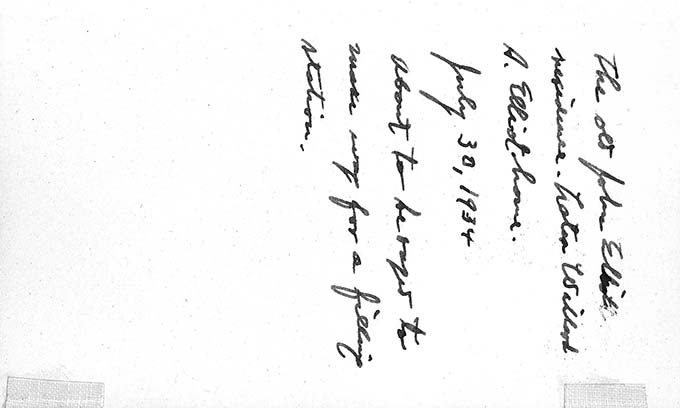 The old John Elliott
residence. Later Willard
A. Elliot home.
July 30, 1934
About to be razed to
make way for a filling
station.